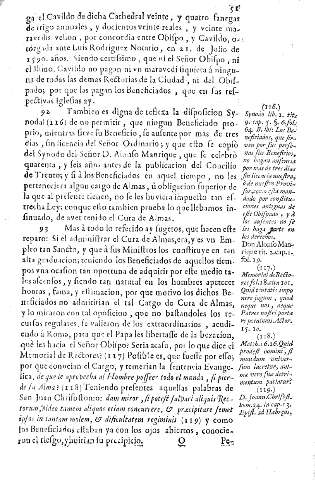 51
ga el Cavildo de dicha Cathedral veinte, y quatro fanegas
de trigo annuales, y docientos veinte reales, y veinte ma-
ravedis vellon, por concordia entre Obispo, y Cavildo, o-
torgada ante Luis Rodriguez Notario, en 21. de Julio de
1590. años. Siendo certissimo, que ni el Señor Obispo, ni
el Ilmo. Cavildo no pagan ni un maravedì siquiera à ningu-
na de todas las demàs Rectorias de la Ciudad, ni del Obis-
pado; por que las pagan los Beneficiados, que en sus res-
pectivas Iglesias ay.
92 Tambien es digna de reflexa la disposicion Sy-
nodal (216) de no permitir, que ningun Beneficiado pro-
prio, mientras sirve su Beneficio, se ausente por mas de tres
dias, sin licencia del Señor Ordinario; y que esto se copiò
del Synodo del Señor D. Alonso Manrique, que se celebrò
quarenta, y seis años antes de la publicacion del Concilio
de Trento; y si à los Beneficiados en aquel tiempo, no les
perteneciera algun cargo de Almas, ù obligacion superior de
la que al presente tienen, no se les huviera impuesto tan es-
trecha Ley; conque esto tambien prueba lo que llebamos in-
sinuado, de aver tenido el Cura de Almas.
93 Mas à todo lo referido ay sugetos, que hacen este
reparo: Si el administrar el Cura de Almas, era, y es un Em-
pleo tan Sancto, y que à sus Ministros los constituye en tan
alta graduacion; teniendo los Beneficiados de aquellos tiem-
pos una ocasion tan oportuna de adquirir por este medio ta-
les ascensos, y siendo tan natural en los hombres apetecer
honras, fama, y estimacion, por que motivo los dichos Be-
neficiados no admitirian el tal Cargo de Cura de Almas,
y lo miraron con tal oposicion, que no bastandoles los re-
cursos regulares, se valieron de los extraordinarios, acudi-
endo à Roma, para que el Papa les libertasse de la vexacion,
què les hacia el Señor Obispo? Seria acaso, por lo que dice el
Memorial de Rectores? (217) Possible es, que fuesse por esso;
por que conocian el Cargo, y temerian la sentencia Evange-
lica, de que le aprovecha al Hombre posseer todo el mundo, si pier-
de la Alma? (218) Teniendo presentes aquellas palabras de
San Juan Chrisostomo: dum miror, si potest salvari aliquis Rec-
torum, video tamen aliquos etiam concurrere, & præcipitare semet
ipsos in tantam molem, & dificultatem regiminis (219) y como
los Beneficiados estaban ya con los ojos abiertos, conocie-
ron el riesgo, y huirian su precipicio. Q Pe-
(216.)
Synodo lib. 2. tit.
9. cap. 5. §. 6. fol.
64. B. ibi: Los Be-
neficiados, que sir-
van por sus perso-
nas sus Beneficios,
no hagan ausencia
por mas de tres dias,
sin licencia nuestra,
ò de nuestro Provi-
sor que es esta man-
dado por constitu-
ciones antiguas de
este Obispado, y à
los ausentes no se
les haga parte en
los derechos.
Don Alonso Man-
rique tit. 2. cap. 1.
fol. 19.
(217.)
Memorial de Recto-
res fol. 18.
(218.)
Math. 6. 26. Quid
prodest homini, si
mundum univer-
sum lucretur, ani-
mæ verò suæ detri-
mentum patiatur?
(219.)
D. Joann. Chrisost.
hom. 34. in cap. 13.
Epist. ad Hebræos.